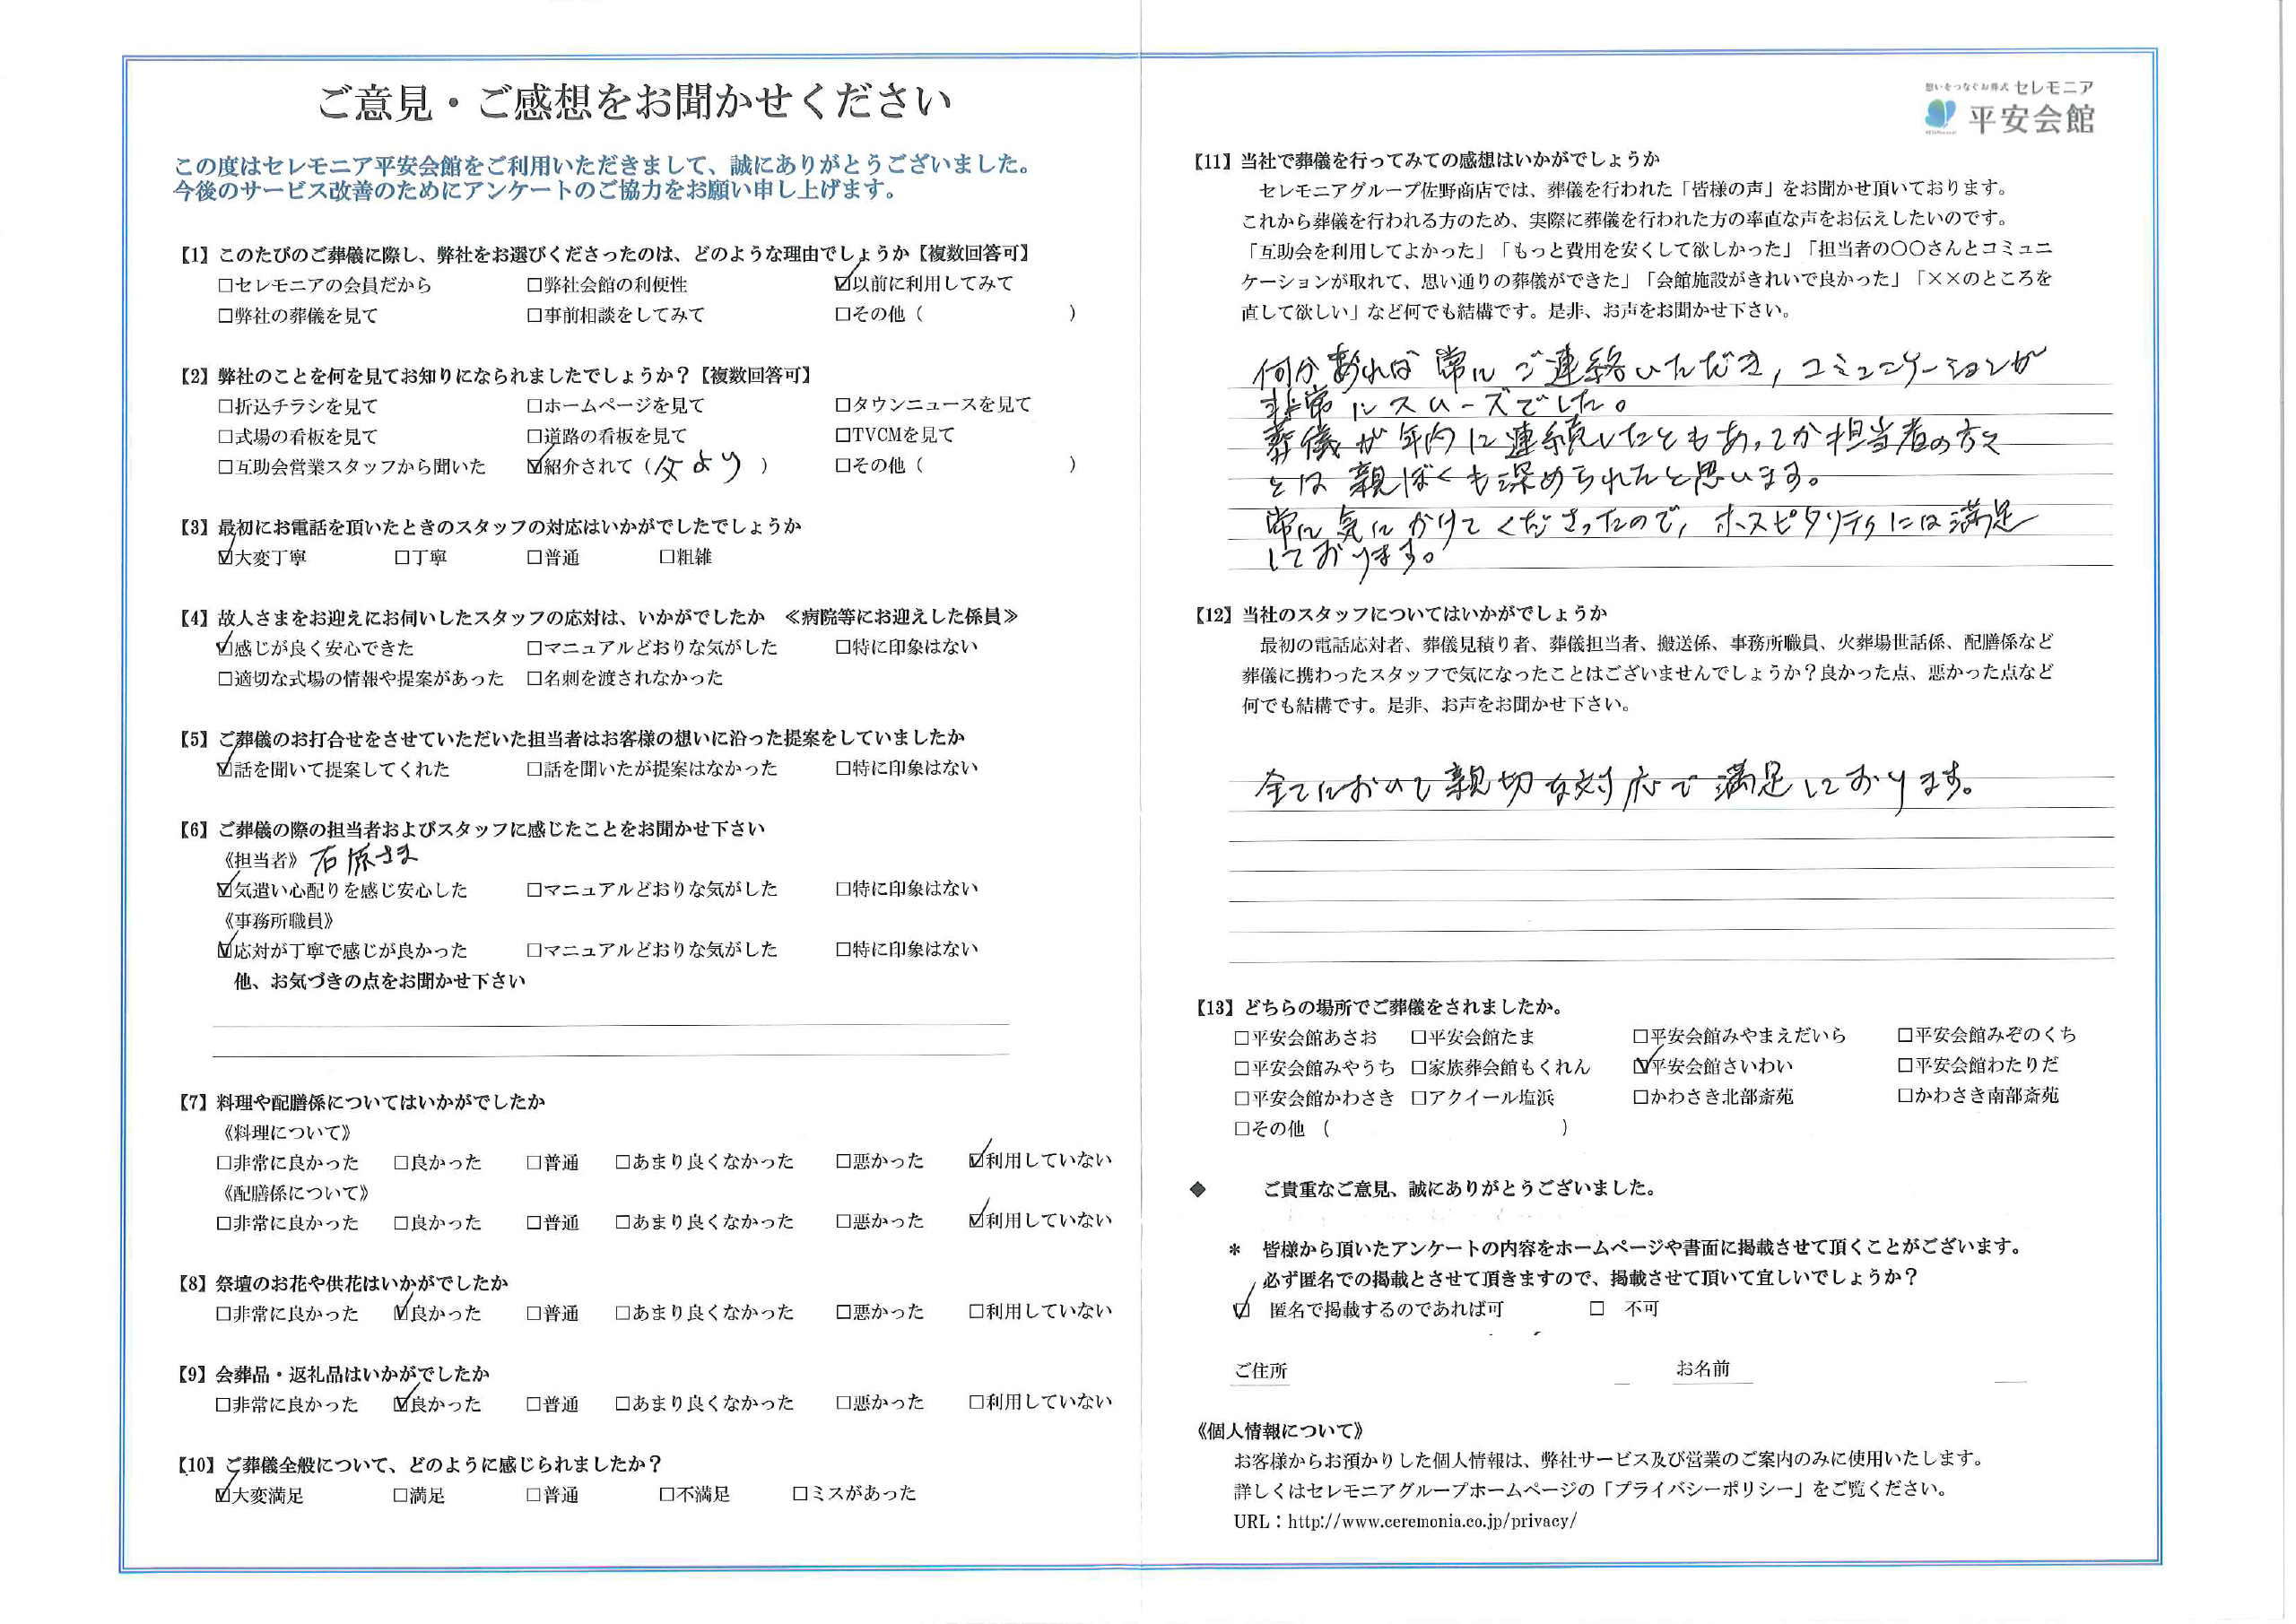 ご意見・ご感想をお聞かせください
この度はセレモニア平安会館をご利用いただきまして、誠にありがとうございました。
今後のサービス改善のためにアンケートのご協力をお願い申し上げます。
【1】このたびのご葬儀に際し、弊社をお選びくださったのは、どのような理由でしょうか【複数回答可】
□セレモニアの会員だから □弊社会館の利便性 ☑以前に利用してみて
□弊社の葬儀を見て □事前相談をしてみて □その他（ ）
【2】弊社のことを何を見てお知りになられましたでしょうか？【複数回答可】
□折込チラシを見て □ホームページを見て □タウンニュースを見て
□式場の看板を見て □道路の看板を見て □TVCMを見て
□互助会営業スタッフから聞いた ☑紹介されて（父より ） □その他（ ）
【3】最初にお電話を頂いたときのスタッフの対応はいかがでしたでしょうか
☑大変丁寧 □丁寧 □普通 □粗雑
【4】故人さまをお迎えにお伺いしたスタッフの応対は、いかがでしたか ≪病院等にお迎えした係員≫
☑感じが良く安心できた □マニュアルどおりな気がした □特に印象はない
□適切な式場の情報や提案があった □名刺を渡されなかった
【5】ご葬儀のお打合せをさせていただいた担当者はお客様の想いに沿った提案をしていましたか
☑話を聞いて提案してくれた □話を聞いたが提案はなかった □特に印象はない
【6】ご葬儀の際の担当者およびスタッフに感じたことをお聞かせ下さい
《担当者》石原さま
☑気遣い心配りを感じ安心した □マニュアルどおりな気がした □特に印象はない
《事務所職員》
☑応対が丁寧で感じが良かった □マニュアルどおりな気がした □特に印象はない
他、お気づきの点をお聞かせ下さい
【7】料理や配膳係についてはいかがでしたか
《料理について》
□非常に良かった □良かった □普通 □あまり良くなかった □悪かった ☑利用していない
《配膳係について》
□非常に良かった □良かった □普通 □あまり良くなかった □悪かった ☑利用していない
【8】祭壇のお花や供花はいかがでしたか
□非常に良かった ☑良かった □普通 □あまり良くなかった □悪かった □利用していない
【9】会葬品・返礼品はいかがでしたか
□非常に良かった ☑良かった □普通 □あまり良くなかった □悪かった □利用していない
【10】ご葬儀全般について、どのように感じられましたか？
☑大変満足 □満足 □普通 □不満足 □ミスがあった
想いをつなぐお葬式 セレモニア
平安会館
【11】当社で葬儀を行ってみての感想はいかがでしょうか
セレモニアグループ佐野商店では、葬儀を行われた「皆様の声」をお聞かせ頂いております。
これから葬儀を行われる方のため、実際に葬儀を行われた方の率直な声をお伝えしたいのです。
「互助会を利用してよかった」「もっと費用を安くして欲しかった」「担当者の〇〇さんとコミュニ
ケーションが取れて、思い通りの葬儀ができた」「会館施設がきれいで良かった」「××のところを
直して欲しい」など何でも結構です。是非、お声をお聞かせ下さい。
何分あれば常にご連絡いただき，コミュニケーションが
非常にスムーズでした。
葬儀が年内に連続したともあってか担当者の方々
とは親ぼくも深められたと思います。
常に気にかけてくださったので，ホスピタリティには満足
しております。
【12】当社のスタッフについてはいかがでしょうか
最初の電話応対者、葬儀見積り者、葬儀担当者、搬送係、事務所職員、火葬場世話係、配膳係など
葬儀に携わったスタッフで気になったことはございませんでしょうか？良かった点、悪かった点など
何でも結構です。是非、お声をお聞かせ下さい。
全てにおいて親切な対応で満足しております。
【13】どちらの場所でご葬儀をされましたか。
□平安会館あさお □平安会館たま □平安会館みやまえだいら □平安会館みぞのくち
□平安会館みやうち □家族葬会館もくれん ☑平安会館さいわい □平安会館わたりだ
□平安会館かわさき □アクイール塩浜 □かわさき北部斎苑 □かわさき南部斎苑
□その他 （ ）
◆ ご貴重なご意見、誠にありがとうございました。
＊ 皆様から頂いたアンケートの内容をホームページや書面に掲載させて頂くことがございます。
必ず匿名での掲載とさせて頂きますので、掲載させて頂いて宜しいでしょうか？
☑ 匿名で掲載するのであれば可 □ 不可
ご住所 お名前
《個人情報について》
お客様からお預かりした個人情報は、弊社サービス及び営業のご案内のみに使用いたします。
詳しくはセレモニアグループホームページの「プライバシーポリシー」をご覧ください。
URL：http://www.ceremonia.co.jp/privacy/